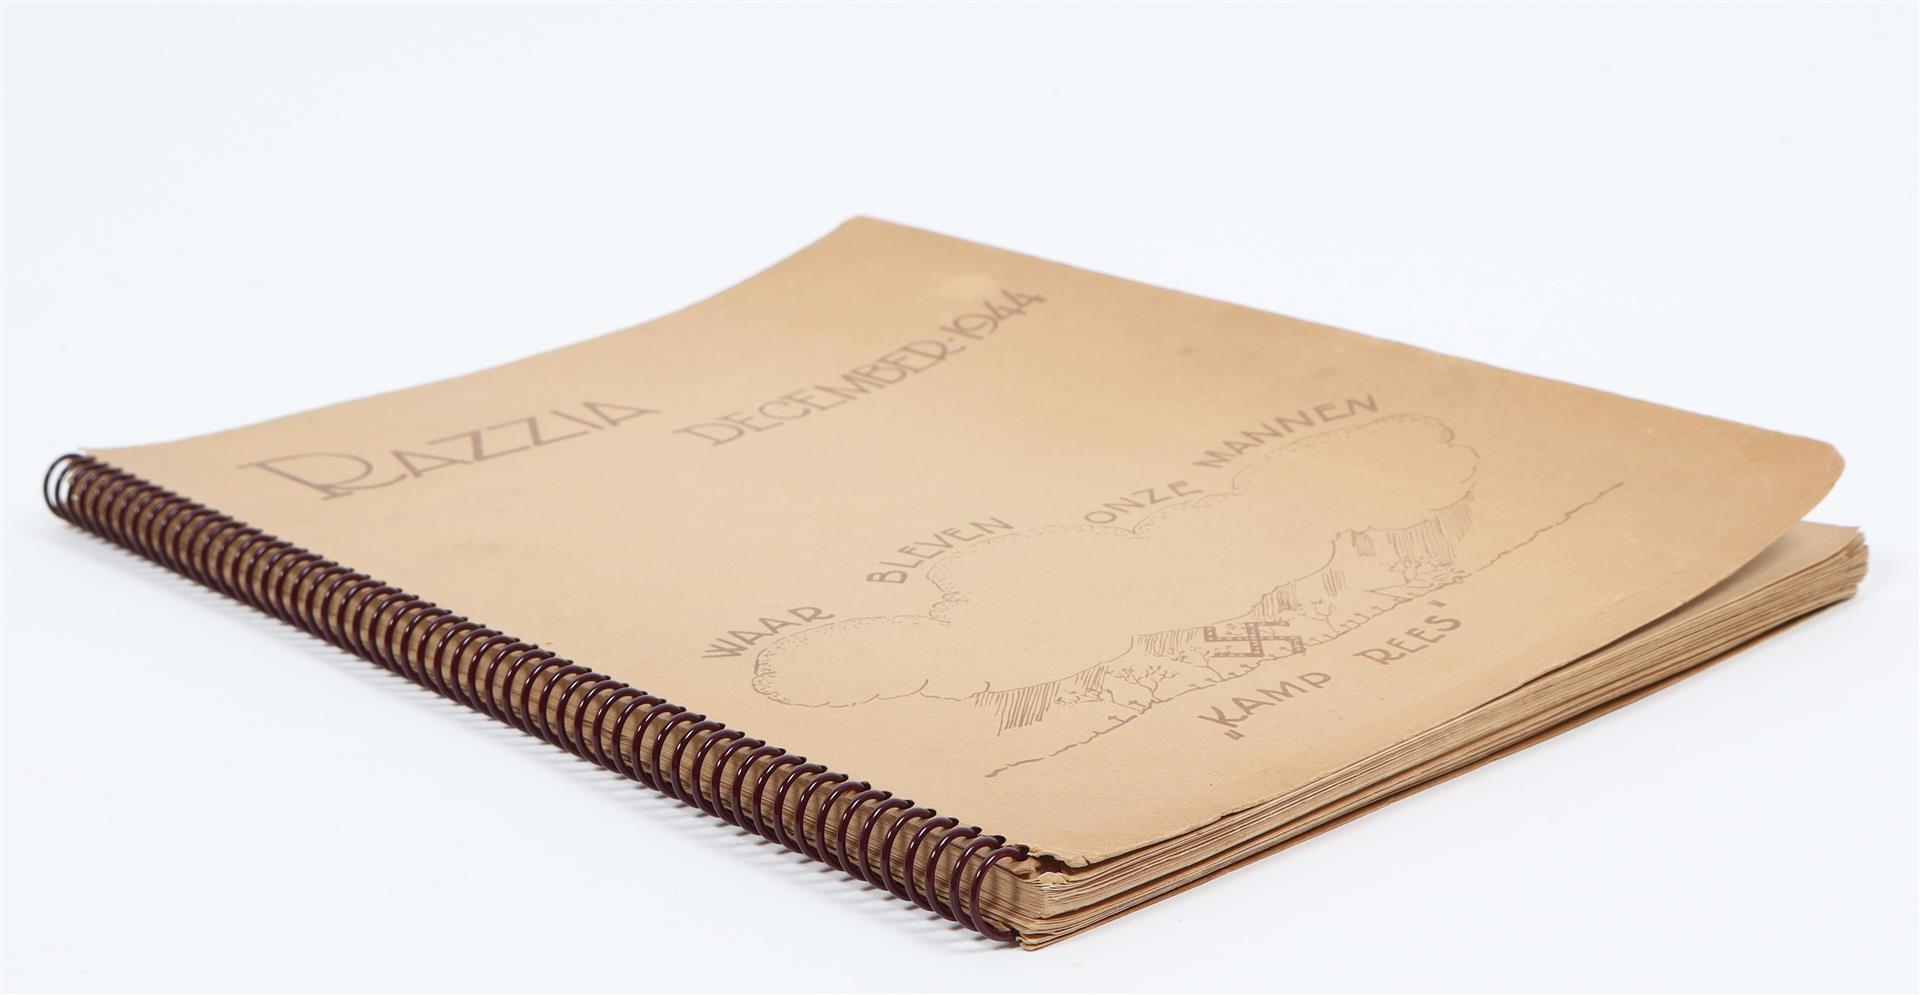 RAZZIA
DECEMBER-1944
WAAR BLEVEN ONZE MANNEN
„KAMP REES"